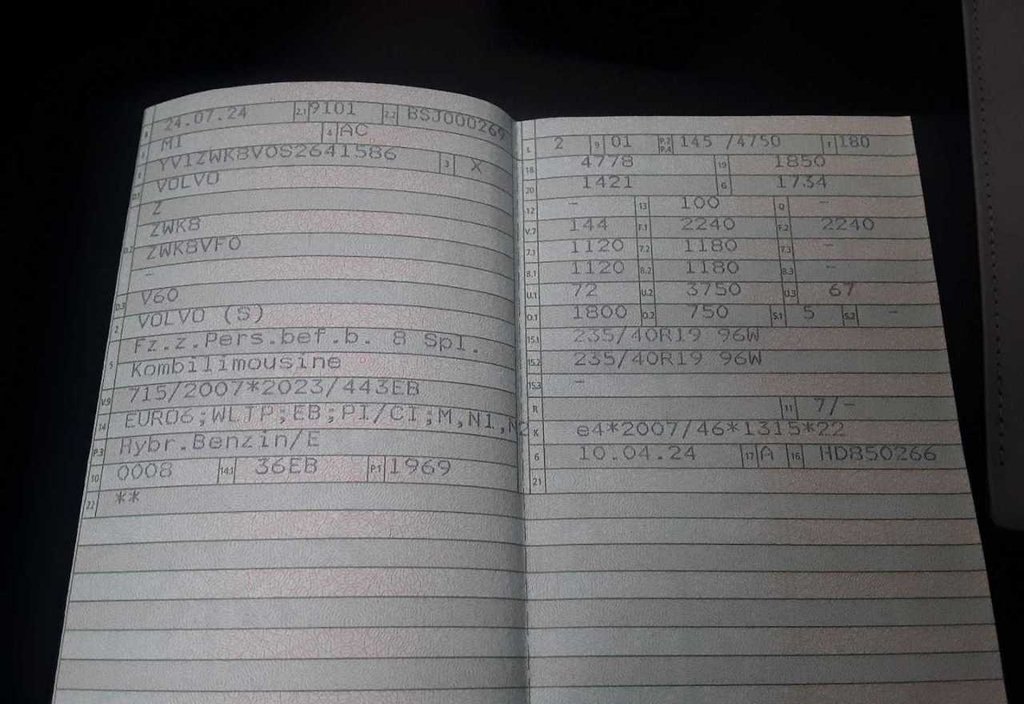 24.07.24 2.1 9101 2.2 BSJ000269
M1 4 AC
YV1ZWK8V0S2641586 3 X
VOLVO
Z
ZWK8
ZWK8VF0
-
D.3 V60
2 VOLVO (S)
Fz.z.Pers.bef.b. 8 Spl.
5 Kombilimousine
V.9 715/2007*2023/443EB
14 EURO6;WLTP;EB;PI/CI;M,N1,N2
P.3 Hybr.Benzin/E
10 0008 14.1 36EB P.1 1969
22 **
L 2 9 01 P.2 P.4 145 /4750 T 180
18 4778 19 1850
20 1421 G 1734
12 - 13 100 Q -
V.7 144 F.1 2240 F.2 2240
7.1 1120 7.2 1180 7.3 -
8.1 1120 8.2 1180 8.3 -
U.1 72 U.2 3750 U.3 67
O.1 1800 O.2 750 S.1 5 S.2 -
15.1 235/40R19 96W
15.2 235/40R19 96W
15.3 -
R 11 7/-
K e4*2007/46*1315*22
6 10.04.24 17 A 16 HD850266
21